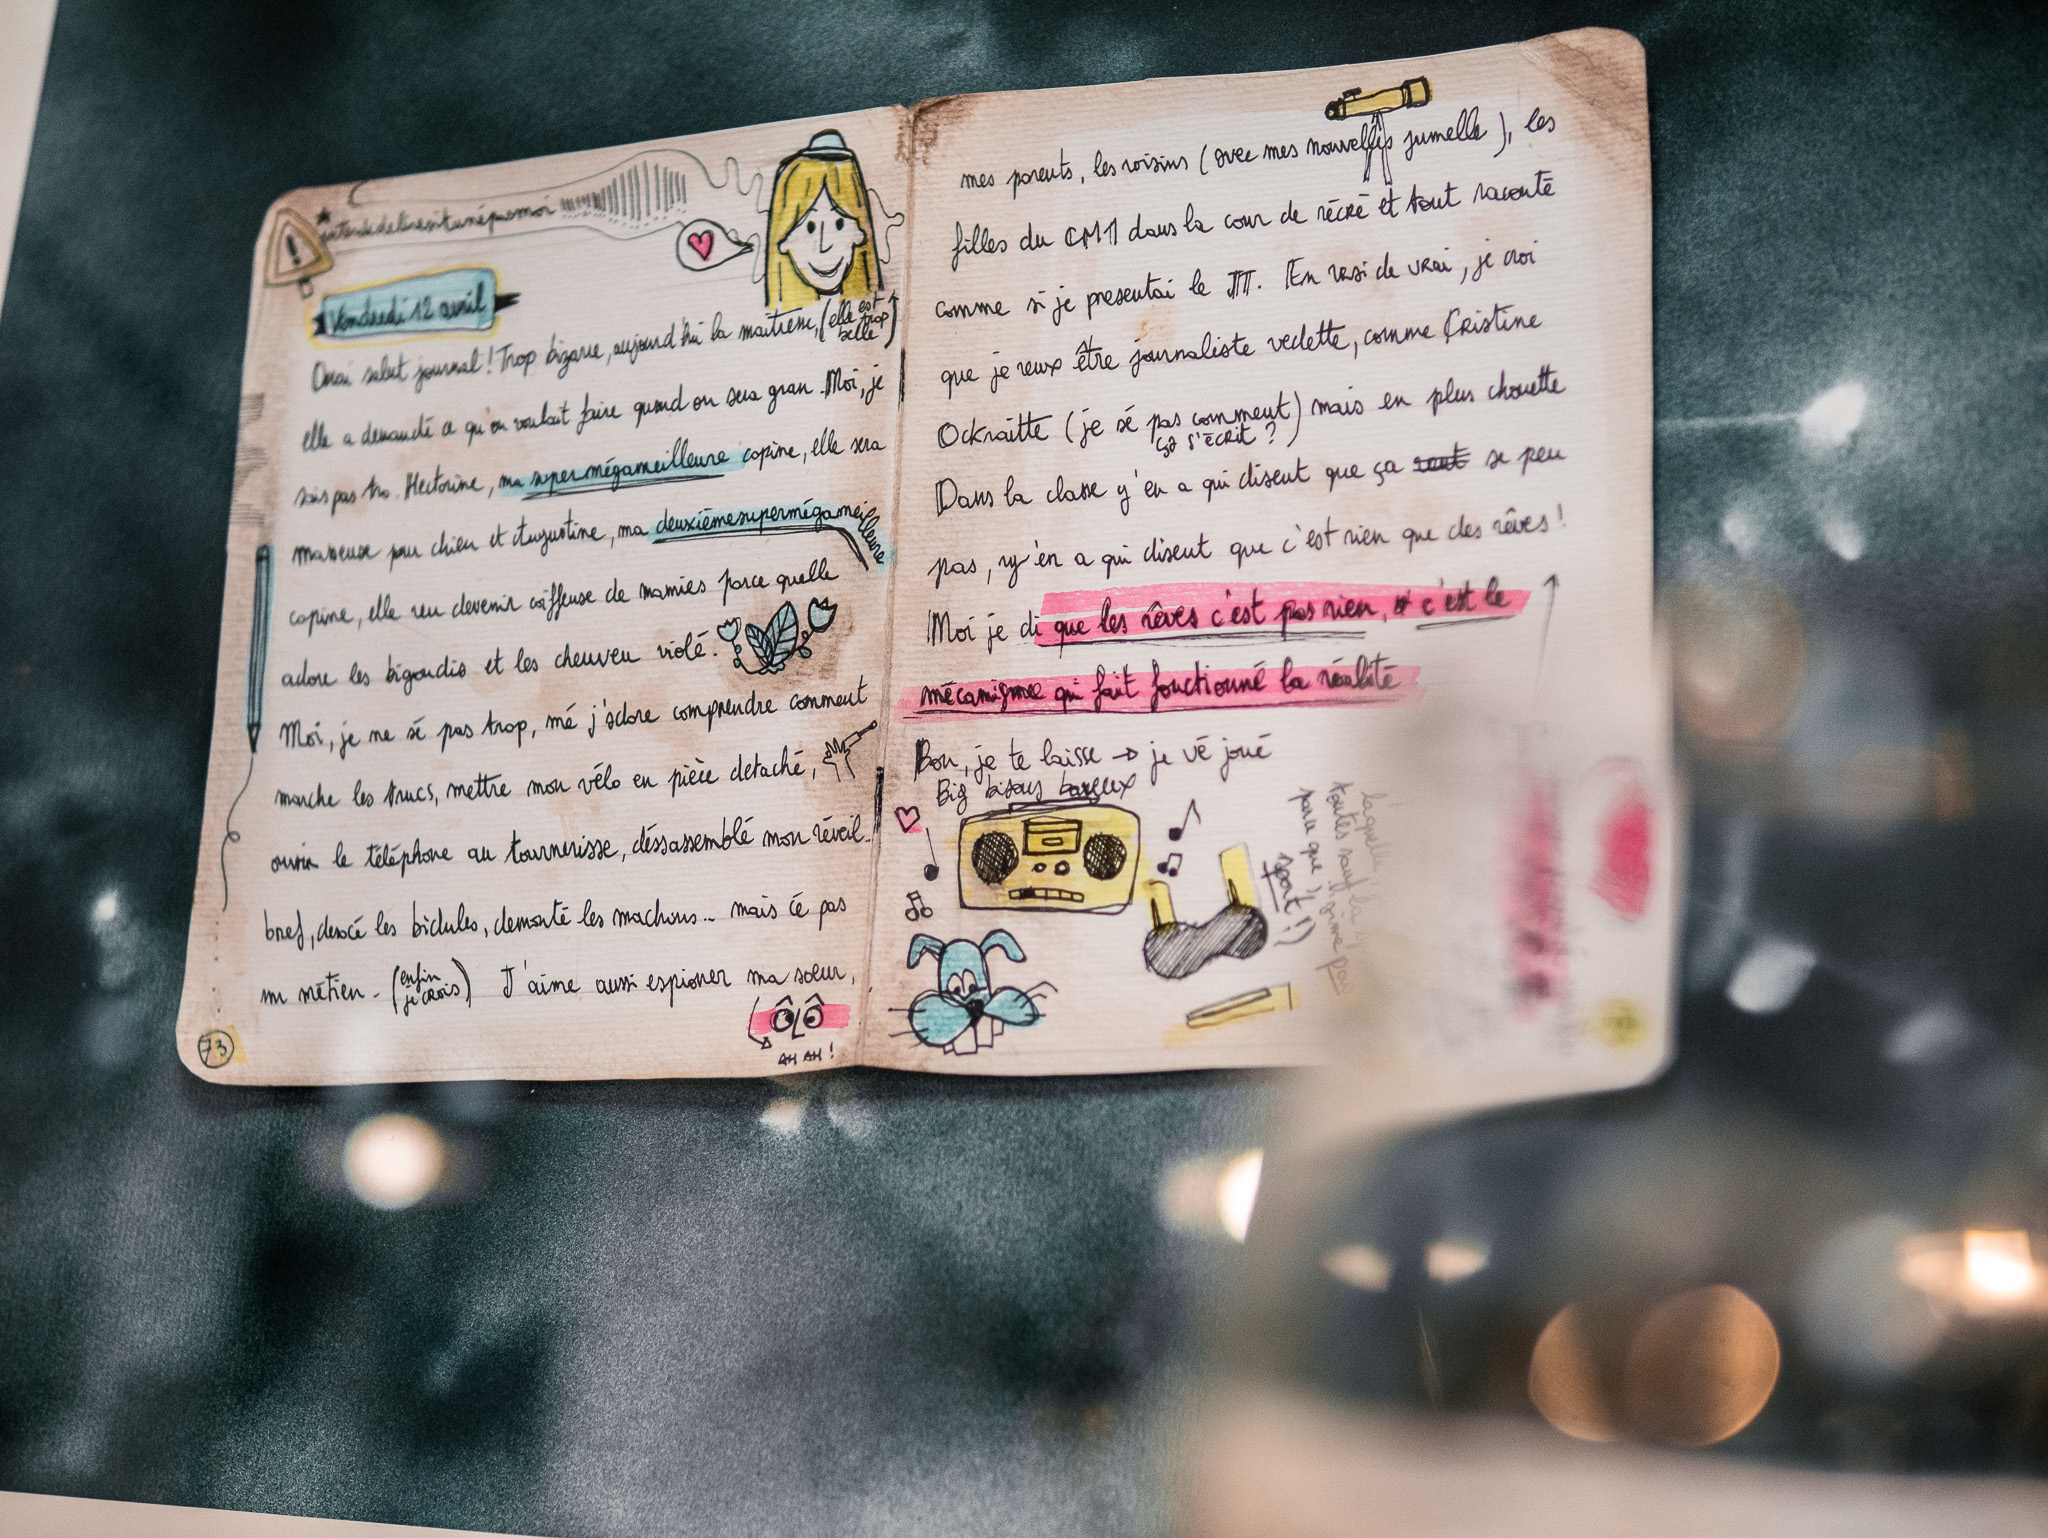 interdideliresitunépamoi
Vendredi 12 avril
Ouai salut journal! Trop bizarre, aujourd'hui la maitresse, (elle est trop belle)
elle a demandé ce qu'on voulait faire quand on sera gran. Moi, je
sais pas tro. Hectorine, ma supermégameilleure copine, elle sera
masseuse pour chien et Augustine, ma deuxièmesupermégameilleure
copine, elle veu devenir coiffeuse de mamies parce quelle
adore les bigoudis et les cheuveu violé.
Moi, je ne sé pas trop, mé j'adore comprendre comment
marche les trucs, mettre mon vélo en pièce detaché,
ouvrir le téléphone au tournevisse, déssassemblé mon réveil..
bref, dessocé les bidules, demonté les machins... mais cé pas
un métier. (enfin je crois) J'aime aussi espionner ma soeur,
AH AH!
73
mes parents, les voisins (avec mes nouvelles jumelle), les
filles du CM1 dans la cour de récré et tout raconté
comme si je presentai le JT. En vrai de vrai, je croi
que je veux être journaliste vedette, comme Cristine
Ockraitte (je sé pas comment ça s'écrit?) mais en plus chouette
Dans la classe y'en a qui disent que ça se peu
pas, y'en a qui disent que c'est rien que des rêves!
Moi je di que les rêves c'est pas rien, c'est le
mécanigmee qui fait fonctionné la réalité
Bon, je te laisse → je vé joué
Big bisous baveux
laquelle?
toutes sauf la
parce que j'aime pas
sport!)